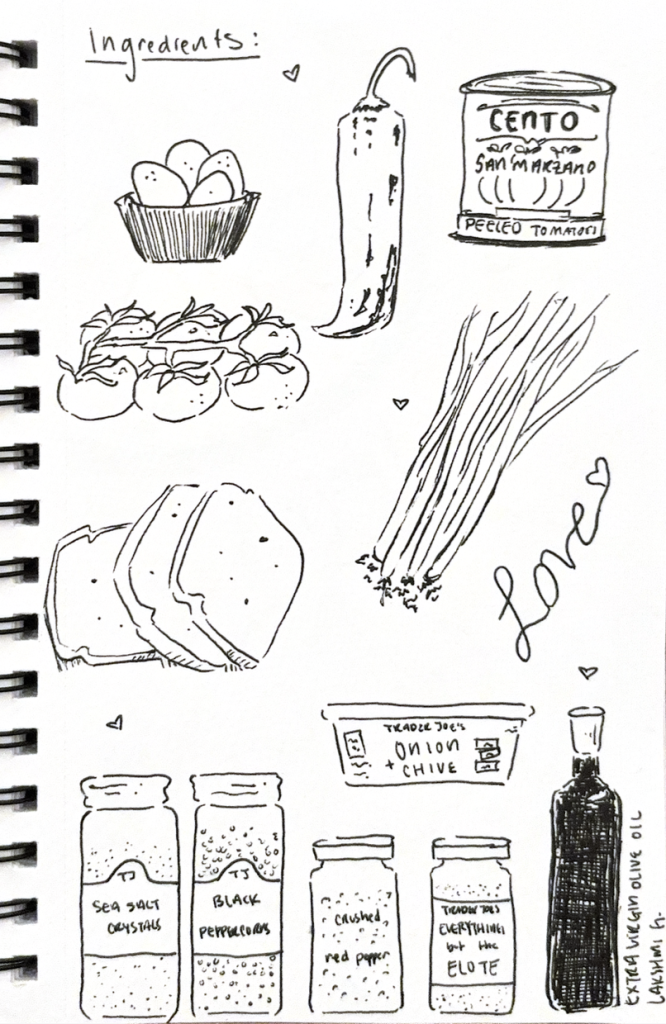 Ingredients:
CENTO
SAN MARZANO
PEELED TOMATOES
Love
TRADER JOE'S
ONION
+ CHIVE
TJ
SEA SALT
CRYSTALS
TJ
BLACK
PEPPERCORNS
crushed
red pepper
TRADER JOE'S
EVERYTHING
but the
ELOTE
EXTRA VIRGIN OLIVE OIL
LAKSHMI A.